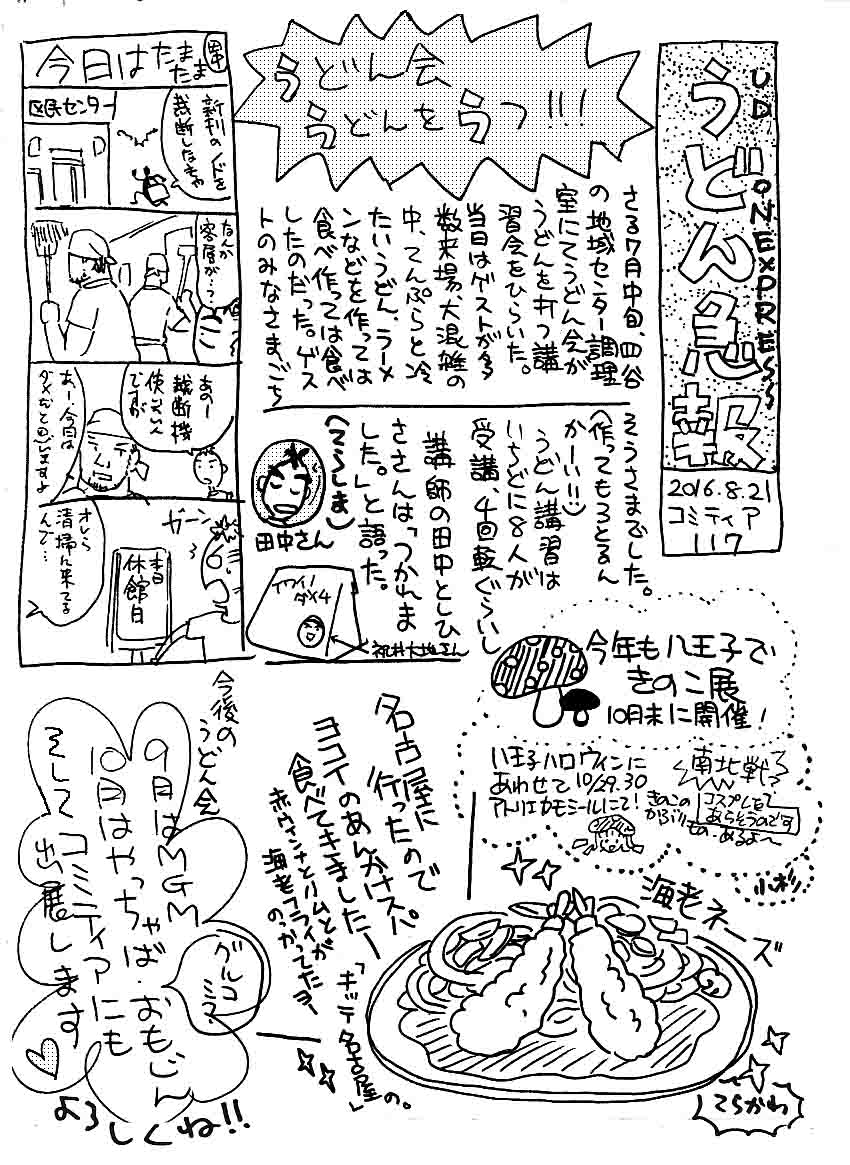 うどん急報
UDON EXPRESS
2016.8.21
コミティア
117
うどん会
うどんをうつ!!!
さる7月中旬、四谷
の地域センター調理
室にてうどん会が
うどんを打つ講
習会をひらいた。
当日はゲストが多
数来場、大混雑の
中、てんぷらと冷
たいうどん、ラーメ
ンなどを作っては
食べ作っては食べ
したのだった。ゲス
トのみなさまごち
そうさまでした。
(作ってもろとるん
かーい!!)
うどん講習は
いちどに8人が
受講、4回転ぐらいし
講師の田中としひ
ささんは「つかれま
した。」と語った。
(てらしま)
田中さん
今日はたまたま
田中
区民センター
新刊の本を
裁断しなきゃ
なんか
客層が…?
あのー
裁断機
使いたいん
ですが
あー、今日は
ダメなとこのしますよ
ガーン
本日
休館日
オレら
清掃に来てる
んで…
イワイノ
ダメ4
祝井大地さん
今年も八王子で
きのこ展
10月末に開催!
八王子ハロウィンに
あわせて10/29.30
アトリエカモミールにて!
南北戦
きのこの
かぶり
もの、あるよ〜
コスプレして
あらそうのです
名古屋に
行ったので
ヨコイのあんかけスパ
食べてきましたー
赤ウィンナとハムとが
海老フライが
のっかってたヨ
「キッテ名古屋」の。
海老ネーズ
てらかわ
今後の
うどん会
9月はMGM
10月はやっちゃば・おもじん
そしてコミティアにも
出展します
グルコミマ
よろしくね!!